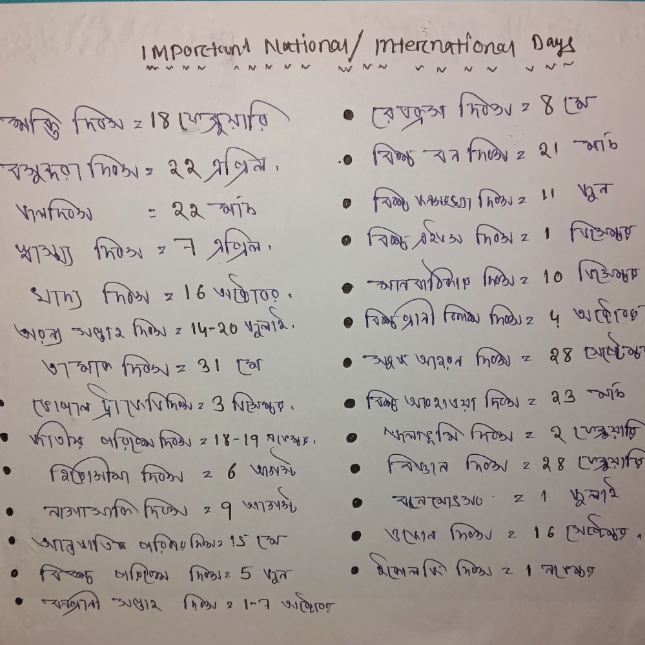 IMPoretant National/International Days
দিবস = 18 ফেব্রুয়ারি
বসুন্ধরা দিবস = 22 এপ্রিল.
জলদিবস = 22 মার্চ
স্বাস্থ্য দিবস = 7 এপ্রিল.
খাদ্য দিবস = 16 অক্টোবর.
অরন্য সপ্তাহ দিবস = 14-20 জুলাই.
তামাক দিবস = 31 মে
ভোপাল ট্রাজেডি দিবস = 3 ডিসেম্বর.
জাতীয় পরিবেশ দিবস = 18-19 নভেম্বর.
হিরোসীমা দিবস = 6 আগস্ট
নাগাসাকি দিবস = 9 আগস্ট
আন্তর্জাতিক পরিবার দিবস = 15 মে
বিশ্ব পরিবেশ দিবস = 5 জুন
বন্যপ্রানী সপ্তাহ দিবস = 1-7 অক্টোবর
রেডক্রস দিবস = 8 মে
বিশ্ব বন দিবস = 21 মার্চ
বিশ্ব জনসংখ্যা দিবস = 11 জুন
বিশ্ব এইডস দিবস = 1 ডিসেম্বর
মানবাধিকার দিবস = 10 ডিসেম্বর
বিশ্ব প্রানী দিবস = 4 অক্টোবর
দিবস = 28 সেপ্টেম্বর
বিশ্ব আবহাওয়া দিবস = 23 মার্চ
জলাভূমি দিবস = 2 ফেব্রুয়ারি
বিজ্ঞান দিবস = 28 ফেব্রুয়ারি
বনমহোৎসব = 1 জুলাই
ওজোন দিবস = 16 সেপ্টেম্বর.
দিবস = 1 নভেম্বর